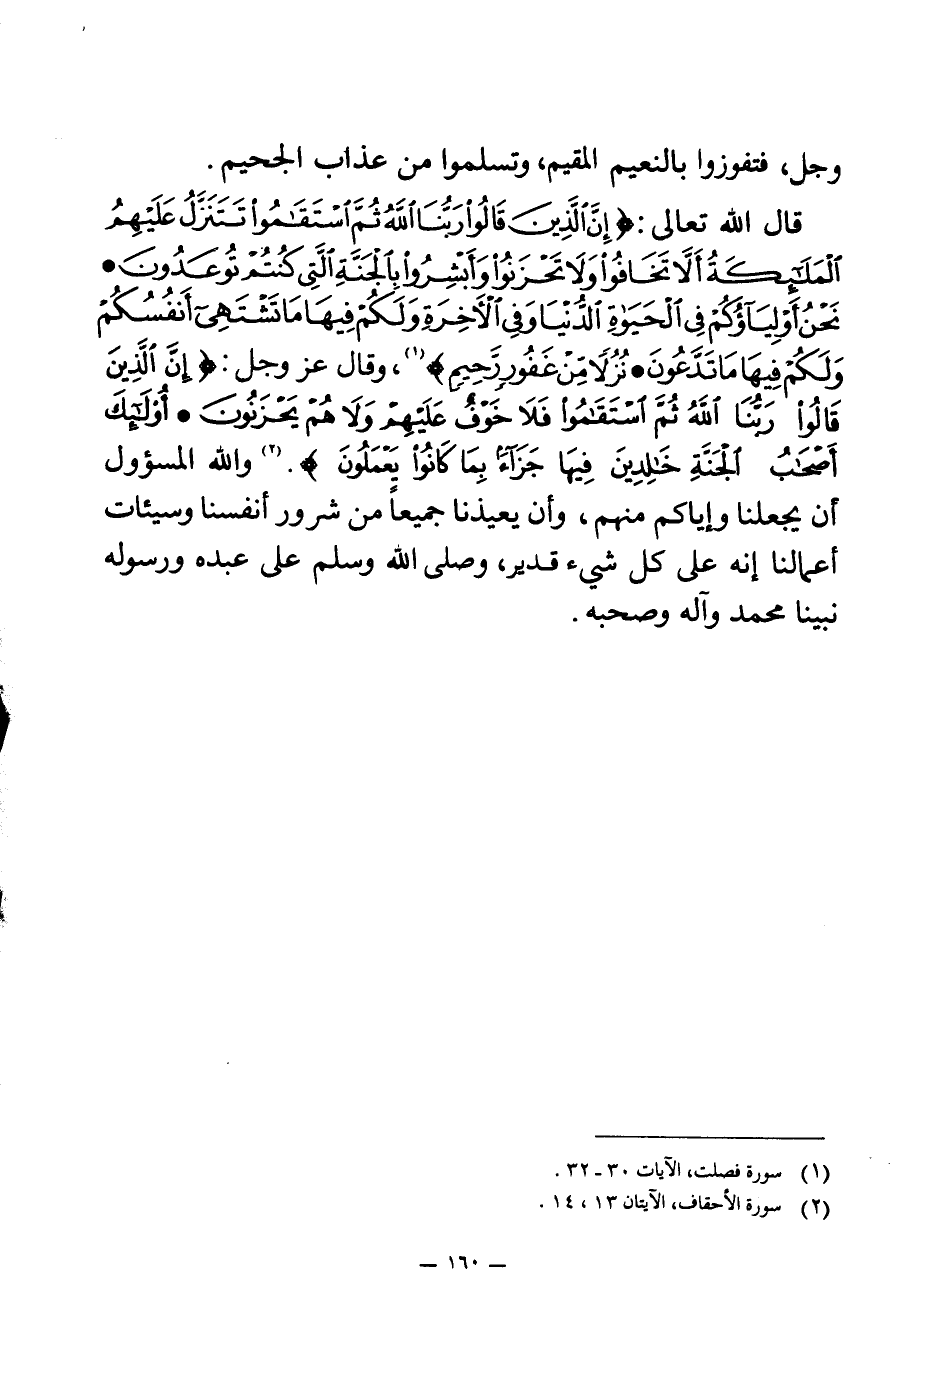 وجل، فتفوزوا بالنعيم المقيم، وتسلموا من عذاب الجحيم .
قال الله تعالى : ﴿ إِنَّ ٱلَّذِينَ قَالُوا۟ رَبُّنَا ٱللَّهُ ثُمَّ ٱسْتَقَٰمُوا۟ تَتَنَزَّلُ عَلَيْهِمُ
ٱلْمَلَٰٓئِكَةُ أَلَّا تَخَافُوا۟ وَلَا تَحْزَنُوا۟ وَأَبْشِرُوا۟ بِٱلْجَنَّةِ ٱلَّتِى كُنتُمْ تُوعَدُونَ •
نَحْنُ أَوْلِيَآؤُكُمْ فِى ٱلْحَيَوٰةِ ٱلدُّنْيَا وَفِى ٱلْأَخِرَةِ وَلَكُمْ فِيهَا مَا تَشْتَهِىٓ أَنفُسُكُمْ
وَلَكُمْ فِيهَا مَا تَدَّعُونَ • نُزُلًا مِّنْ غَفُورٍ رَّحِيمٍ ﴾(١)، وقال عز وجل : ﴿ إِنَّ ٱلَّذِينَ
قَالُوا۟ رَبُّنَا ٱللَّهُ ثُمَّ ٱسْتَقَٰمُوا۟ فَلَا خَوْفٌ عَلَيْهِمْ وَلَا هُمْ يَحْزَنُونَ • أُو۟لَٰٓئِكَ
أَصْحَٰبُ ٱلْجَنَّةِ خَٰلِدِينَ فِيهَا جَزَآءًۢ بِمَا كَانُوا۟ يَعْمَلُونَ ﴾ .(٢) والله المسؤول
أن يجعلنا وإياكم منهم، وأن يعيذنا جميعاً من شرور أنفسنا وسيئات
أعمالنا إنه على كل شيء قدير، وصلى الله وسلم على عبده ورسوله
نبينا محمد وآله وصحبه .
(١) سورة فصلت، الآيات ٣٠ ـ ٣٢ .
(٢) سورة الأحقاف، الآيتان ١٣ ، ١٤ .
— ١٦٠ —